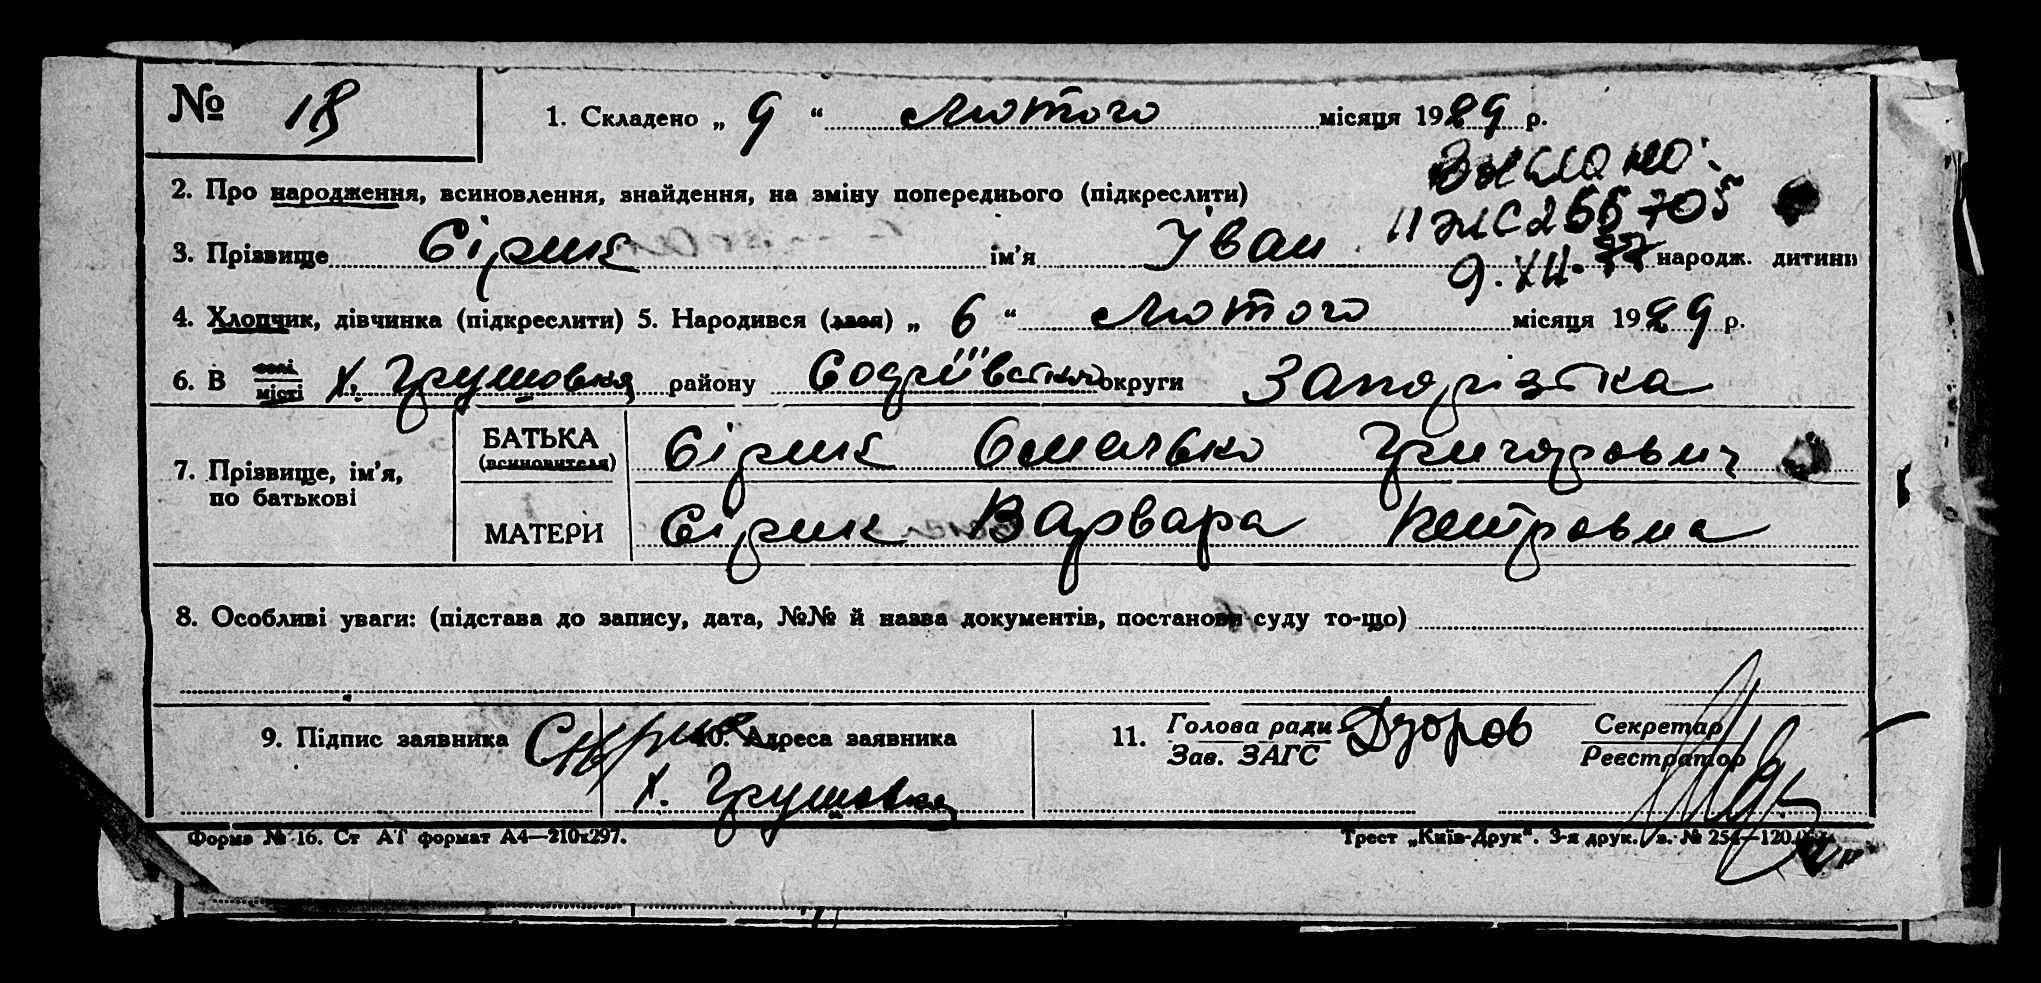 № 18
1. Складено „ 9 “ Лютого місяця 1929 р.
2. Про народження, всиновлення, знайдення, на зміну попереднього (підкреслити)
II ЖС 255705
9.XII.77
3. Прізвище Сірик ім’я Іван народж. дитини
4. Хлопчик, дівчинка (підкреслити) 5. Народився (лася) „ 6 “ Лютого місяця 1929 р.
6. В селі
місті х. Грушовка району округи Запорізька
7. Прізвище, ім’я,
по батькові
БАТЬКА
(всиновителя) Сірик Омелько Григорович
МАТЕРИ Сірик Варвара Петровна
8. Особливі уваги: (підстава до запису, дата, №№ й назва документів, постанови суду то-що)
9. Підпис заявника
10. Адреса заявника
х. Грушовка
11. Голова ради
Зав. ЗАГС
Секретар
Реєстратор
Форма № 16. Ст АТ формат А4—210х297.
Трест „Київ-Друк“. 3-я друк.